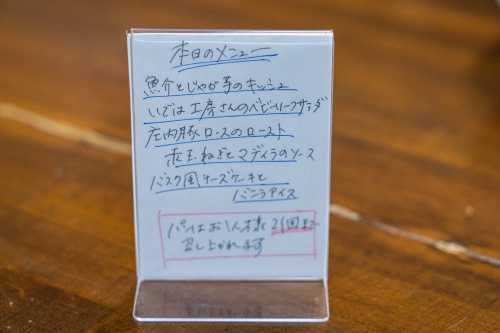 本日のメニュー
魚介とじゃが芋のキッシュ
いでは工房さんのベビーリーフサラダ
庄内豚ロースのロースト
赤玉ねぎとマディラのソース
バスク風チーズケーキと
バニラアイス
パンはお1人様2個まで
召し上がれます